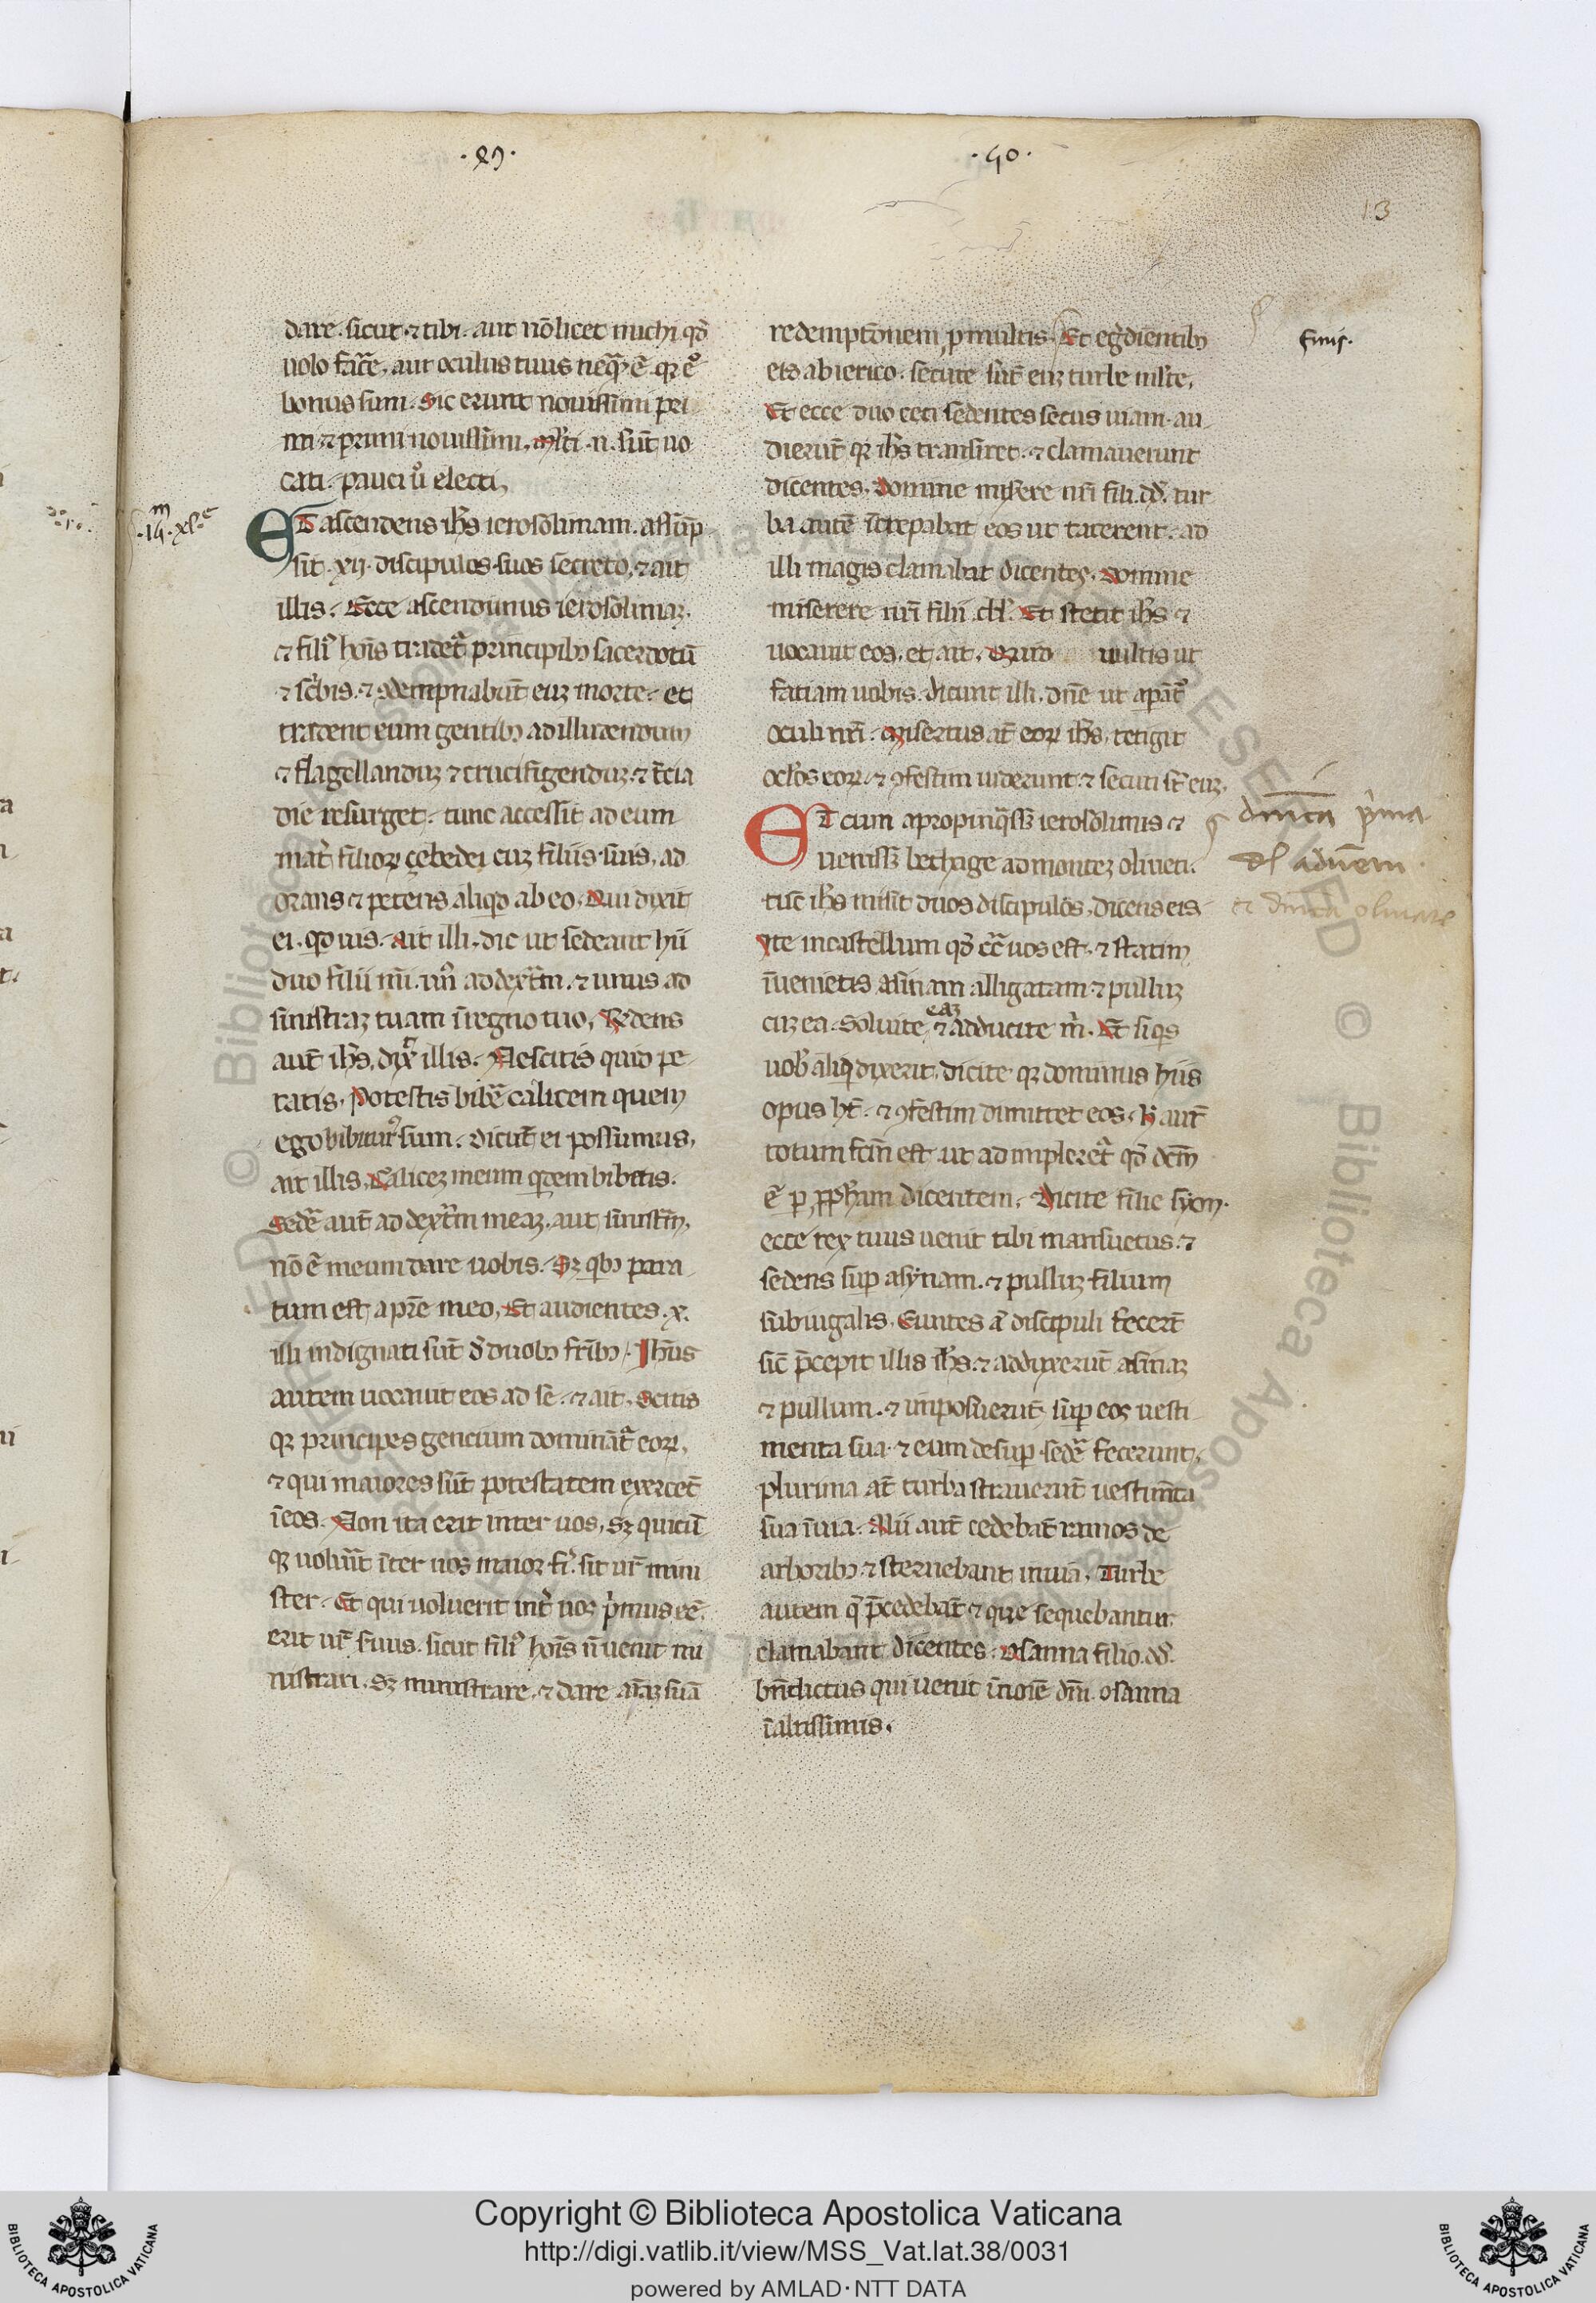 ·89·
·90·
13
dare. sicut ⁊ tibi. aut nō licet michi qđ
uolo facͤe. aut oculus tuus neqͣ̄ ē. qꝛ eͦ
bonus sum. Sic erunt nouissimi pri
mi ⁊ primi nouissimi. ml̓ti .n. sūt uo
cati. pauci ů electi.
ET ascendens ih̄s ierosolimam. assūp
sit .xij. discipulos suos secreto. ⁊ ait
illis. Ecce ascendimus ierosolimaꝫ.
⁊ fili᷒ hoīs tradet᷑ principibꝫ sacerdotū
⁊ sc̓bis. ⁊ ꝯdempnabūt euꝫ morte. et
tradent eum gentibꝫ ad illudendum
⁊ flagellanduꝫ ⁊ crucifigenduꝫ. ⁊ t̄cia
die resurget. tunc accessit ad eum
mat̓ filioꝝ çebedei cuꝫ filiis suis. ad
orans ⁊ petens aliqͥd ab eo. Qui dixit
ei. qͥd uis. Ait illi. dic ut sedeant hii
duo filii mī. un᷒ ad dext̄m. ⁊ unus ad
sinistraꝫ tuam ī regno tuo. R̄dens
aut̄ ih̄s. dix͛ illis. Nescitis quid pe
tatis. Potestis bibe͛ calicem quem
ego bibitur᷒ sum. dicūt ei possumus.
ait illis. Calicez meum qͥdem bibetis.
Sede͛ aut̄ ad dext̄m meaꝫ. aut sinist̄m,
nō ē meum dare uobis. Sꝫ qͥbꝫ para
tum est a pr̄e meo. Et audientes .x.
illi indignati sūt đ duobꝫ fr̄ibꝫ. Ihūs
autem uocauit eos ad se. ⁊ ait. Scitis
qꝛ principes gencium domināt᷑ eoꝝ.
⁊ qui maiores sūt potestatem exercēt
ī eos. Non ita erit inter uos. sꝫ quicū
qꝫ uolūit īter uos maior fi͛. sit ur̄ mini
ster. Et qui uoluerit int̓ uos p̓mus eē.
erit ur̄ suus. sicut fili᷒ hoīs ñ uenit mi
nistrari. sꝫ ministrare. ⁊ dare aīaꝫ suā
.iiij. xl.
m
e
redemptōnem p multis. Et eg̓dientibꝫ
eis ab ierico. secute sūt euꝫ turbe m̄lte.
Et ecce duo ceci sedentes secus uiam. au
dierūt qꝛ ih̄s transiret. ⁊ clamauerunt
dicentes. Domine misere nr̄i fili dđ. tur
ba autē īcrepabat eos ut tacerent. ad
illi magis clamabāt dicentes. Domine
miserere nr̄i filii dđ. Et stetit ih̄s ⁊
uocauit eos. et ait. Quid uultis ut
faciam uobis. dicunt illi. dn̄e ut apāt᷑
oculi nr̄i. Misertus at̄ eoꝝ ih̄s. tetigit
oc̓los eoꝝ. ⁊ ꝯfestim uiderunt. ⁊ secuti st̄ euꝫ.
ET cum apropinqͣssꝫ ierosolimis ⁊
uenissꝫ bethage ad montez oliueti.
tūc ih̄s misit duos discipulos. dicens eis
Ite in castellum qđ cͣ̄ uos est. ⁊ statim
īuenietis asinam alligatam ⁊ pulluꝫ
cuꝫ ea. Soluite eaꝫ ⁊ adducite m̓. Et siqͥs
uob̓ aliqͥ dixerit. dicite qꝛ dominus hiis
opus ht̄. ⁊ ꝯfestim dimittet eos. h̓ aut̄
totum fc̄m est ut adimpleret᷑ qđ dc̄m
ē p pph̄am dicentem. Dicite filie syon.
ecce rex tuus uenit tibi mansuetus. ⁊
sedens sup asynam. ⁊ pulluꝫ filium
subiugalis. Euntes a̓ discipuli fecer̄t
sic̄ p̄cepit illis ih̄s. ⁊ adduxerūt asinaꝫ
⁊ pullum. ⁊ imposuerūt sup eos uesti
menta sua. ⁊ eum desup sede͛ fecerunt.
plurima at̄ turba strauerūt uestim̄ta
sua ī uia. Alii aut̄ cedebāt ramos de
arboribꝫ. ⁊ sternebant in uia. Turbe
autem q̄ p̄cedebāt ⁊ que sequebantur.
clamabant dicentes. Osanna filio. dđ.
bn̄dictus qui uenit ī noīe dn̄i. osanna
ī altissimis.
finis.
dnīca p̓ma
đ aduēm
et dnīca oliuare
Copyright © Biblioteca Apostolica Vaticana
http://digi.vatlib.it/view/MSS_Vat.lat.38/0031
powered by AMLAD·NTT DATA
BIBLIOTECA APOSTOLICA VATICANA
BIBLIOTECA APOSTOLICA VATICANA